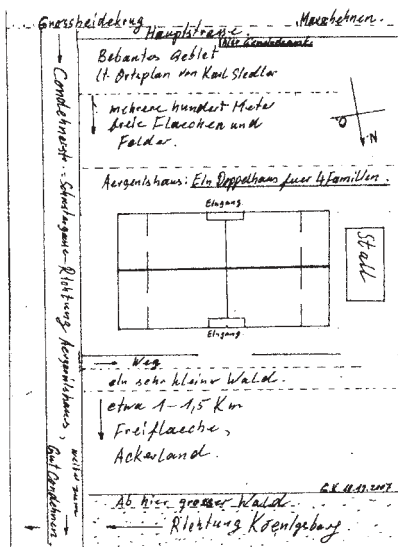 Grossheidekrug Maxobehnen.
Hauptstrasse
Bebautes Gebiet
lt. Ortsplan von Karl Siedler
mehrere hundert Meter
freie Flaechen und
Felder.
N.
O
Aergenilshaus: Ein Doppelhaus fuer 4 Familien.
Eingang
Stall
Eingang
Weg
ein sehr kleiner Wald.
etwa 1-1,5 Km
Freiflaeche,
Ackerland.
Ab hier grosser Wald.
Richtung Koenigsberg
Condehnerstr. - Schustergasse - Richtung Aergenilshaus,
weiter zum
Gut Condehnen.